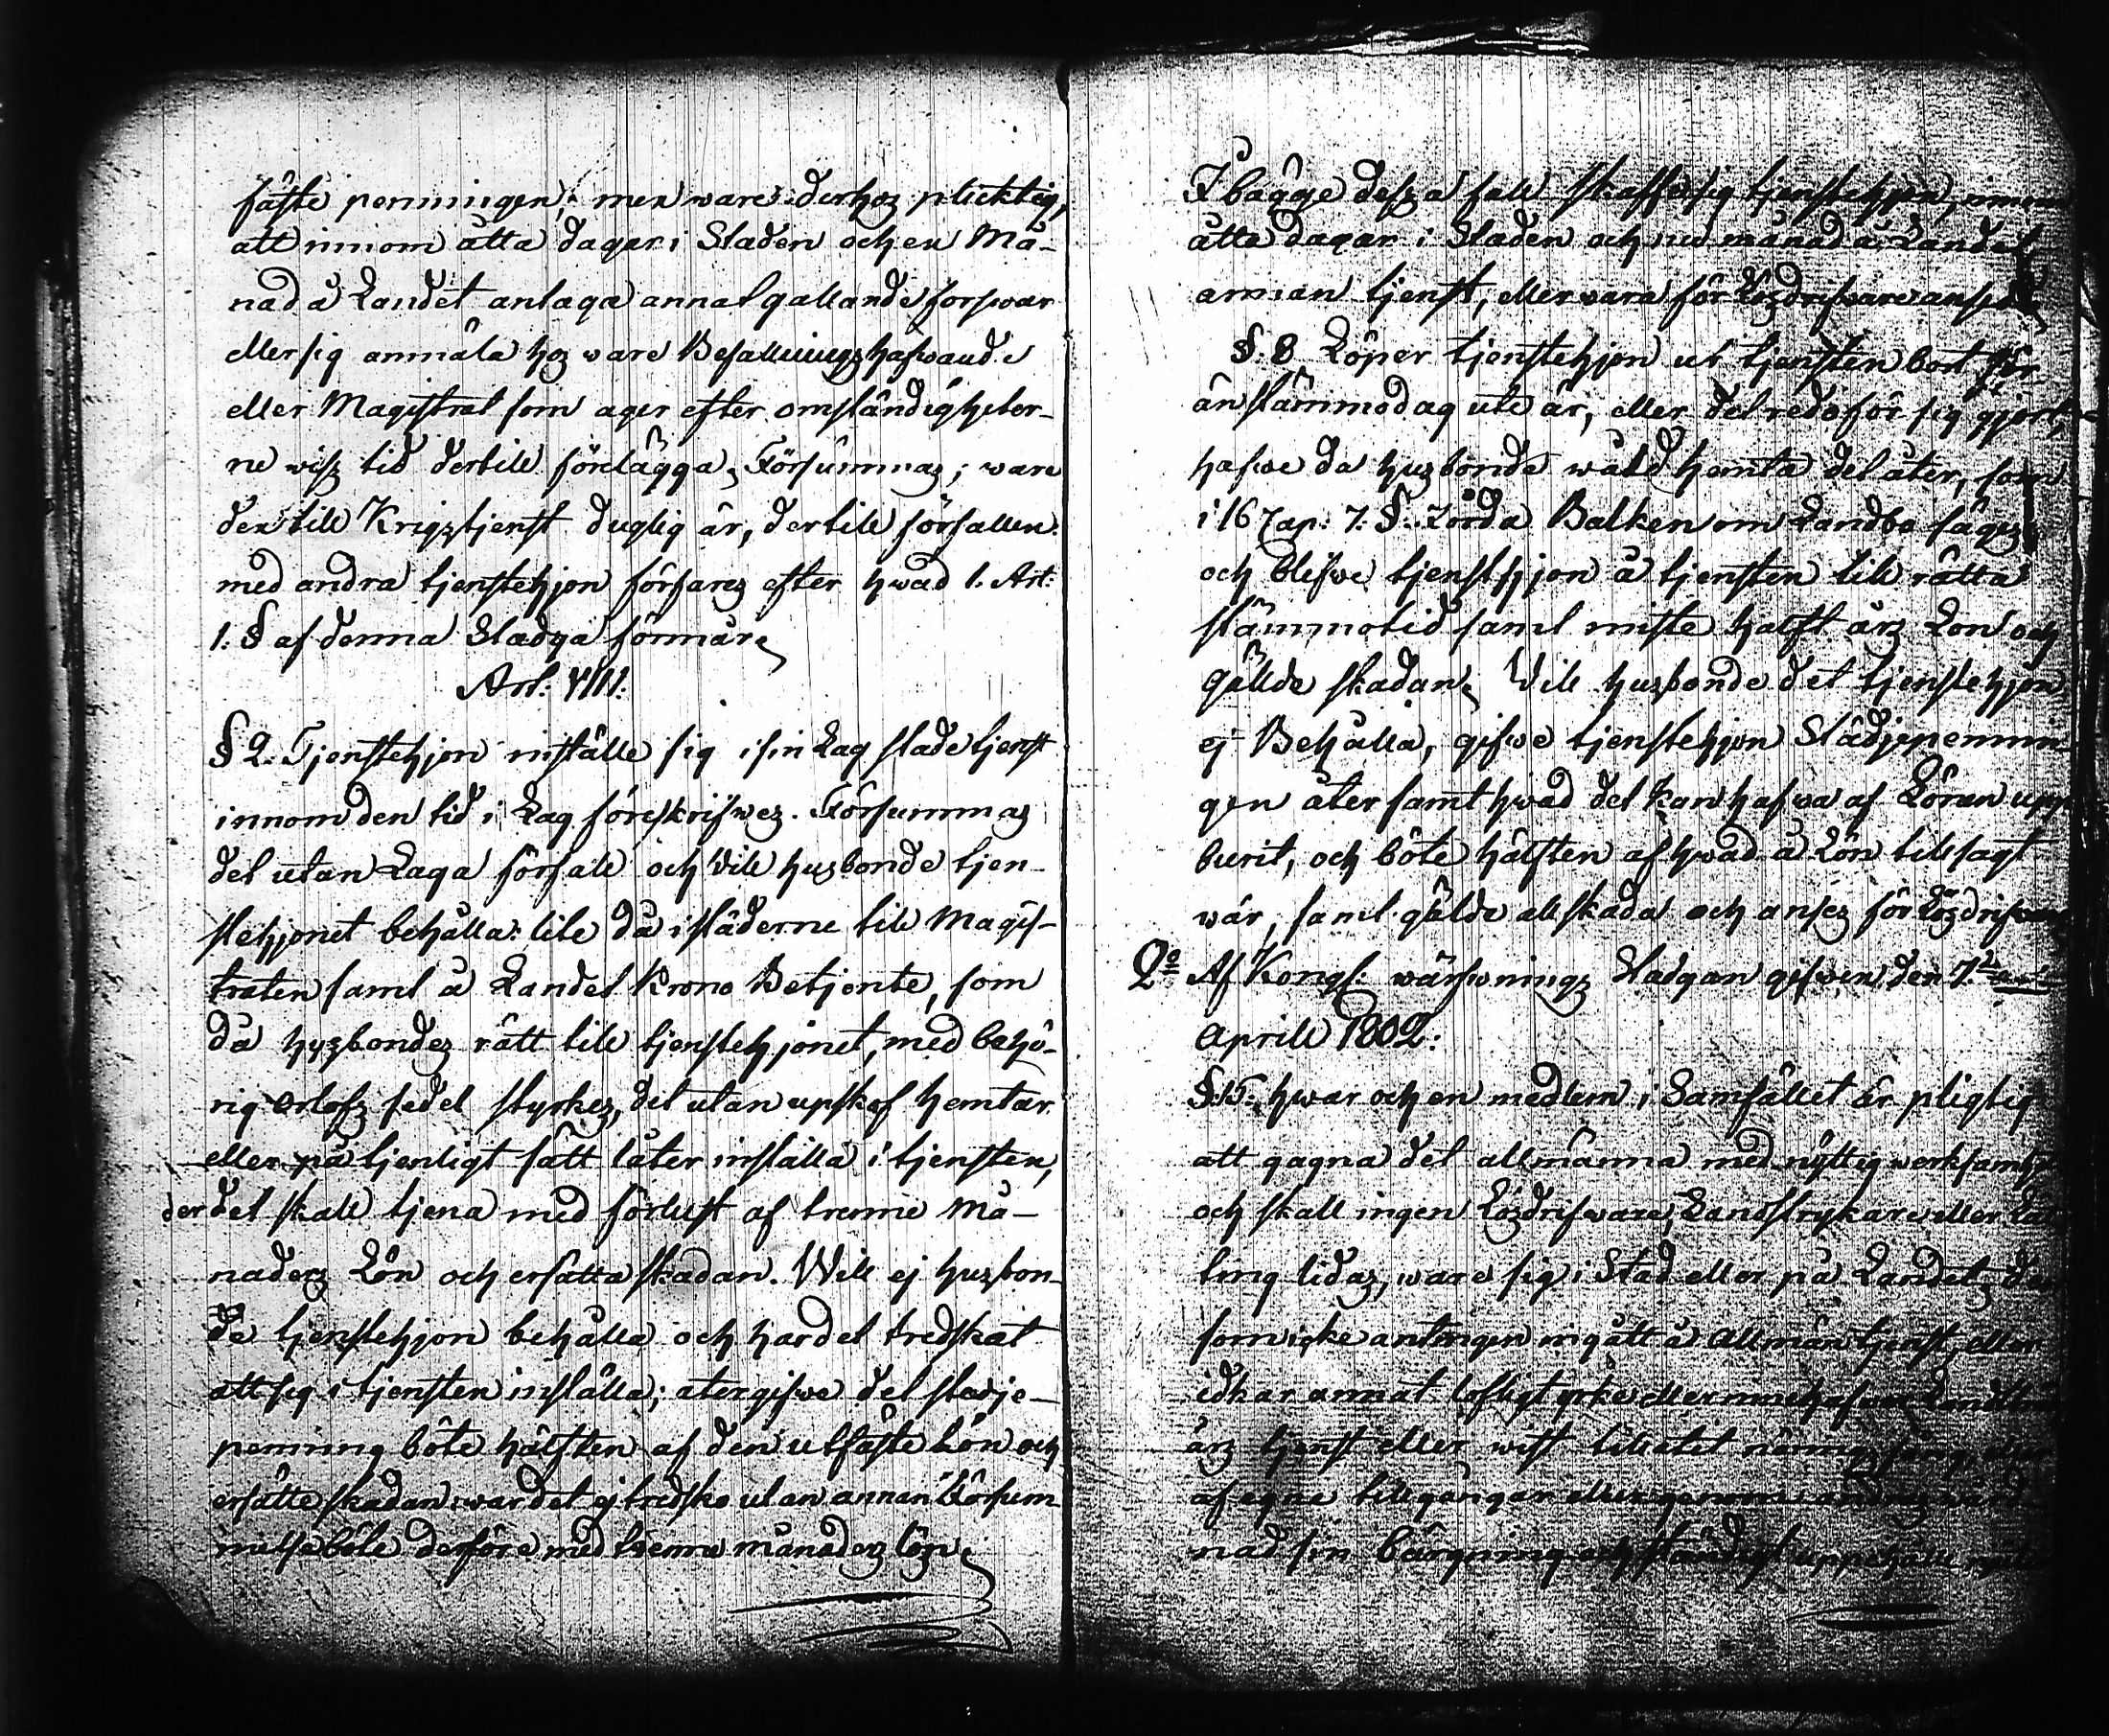 fäste penningen; men ware derhoz plicktig,
att innom åtta dagar i Staden och en Må-
nad å Landet antaga annat gällande förswar
eller sig anmäla hoz ware Befallningzhafwande
eller Magistrat som äger efter omständigheter-
ne wisz tid dertill förelägga, Försummaz; ware
den till Krigztjenst duglig är, dertill förfallen:
med andra tjenstehjon förfarez efter hwad 1. Art:
1: § af denna Stadga förmår,
Art: VIII:
§ 2. Tjenstehjon inställe sig i sin Lag stade tjenst
innom den tid i Lag föreskrifwez. Försummaz
det utan Laga förfall och Vill huzbonde tjen-
stehjonet behålla: lite då i städerne till Magis-
traten samt å Landet Krono Betjente, som
då huzbondez rätt till tjenstehjonet, med behö-
rig Orlofz sedel styrkez, det utan upskof hemtar
eller på tjenligt sätt låter inställa i tjensten,
der det skall tjena med förlust af trenne Må-
naderz Lön och ersätta skadan. Will ej huzbon-
de tjenstehjon behålla och har det tredskat
att sig i tjensten inställa; återgifwe det stadje-
penning böte hälften af den utfäste Lön och
ersätte skadan: war det ej tredsko utan annan Försum
melse böte derföre med trenne månaderz lön.
I bägge desza fall skaffe sig tjenstehjon, innom
åtta dagar i Staden och en månad å Landet
annan tjenst, eller vara för Lözdrifware ansedd
§. 8 Löper tjenstehjon ur tjensten bort för
än stämmodag ute är, eller det redo för sig gjort,
hafwe da huzbonde wåld hemta det åter, som
i 16 Cap: 7: §: Jorda Balken om Landbo sägez
och blifwe tjenstehjon å tjensten till rätta
stämmotid samt miste halft årz Lön och
gällde skadan. Will huzbonde det tjenstehjon
ej Behålla, gifwe tjenstehjon Städjepennin
gen åter samt hwad det kan hafwa af Lönen upp
burit, och böte hälften af hwad å Lön tillsagt
wär, samt gälde all skada och ansez för Lözdrifware
2º Af Kongl: wärfwningz Stadgan gifwen den 7:de
Aprill 1802:
§: 15: hwar och en medlem i Samhället är pligtig
att gagna det allmänna med nyttig werksamhet
och skall ingen Lözdrifware, Landstrykare eller
ting lidaz, ware sig i Stad eller på Landet,
som icke antingen ingått å Allmän tjenst, eller
idkar annat lofligt yrke eller innehafwer
årz tjenst eller wist
af egne tillgångar eller genom
nad sin bärgning och ständigt uppehälle